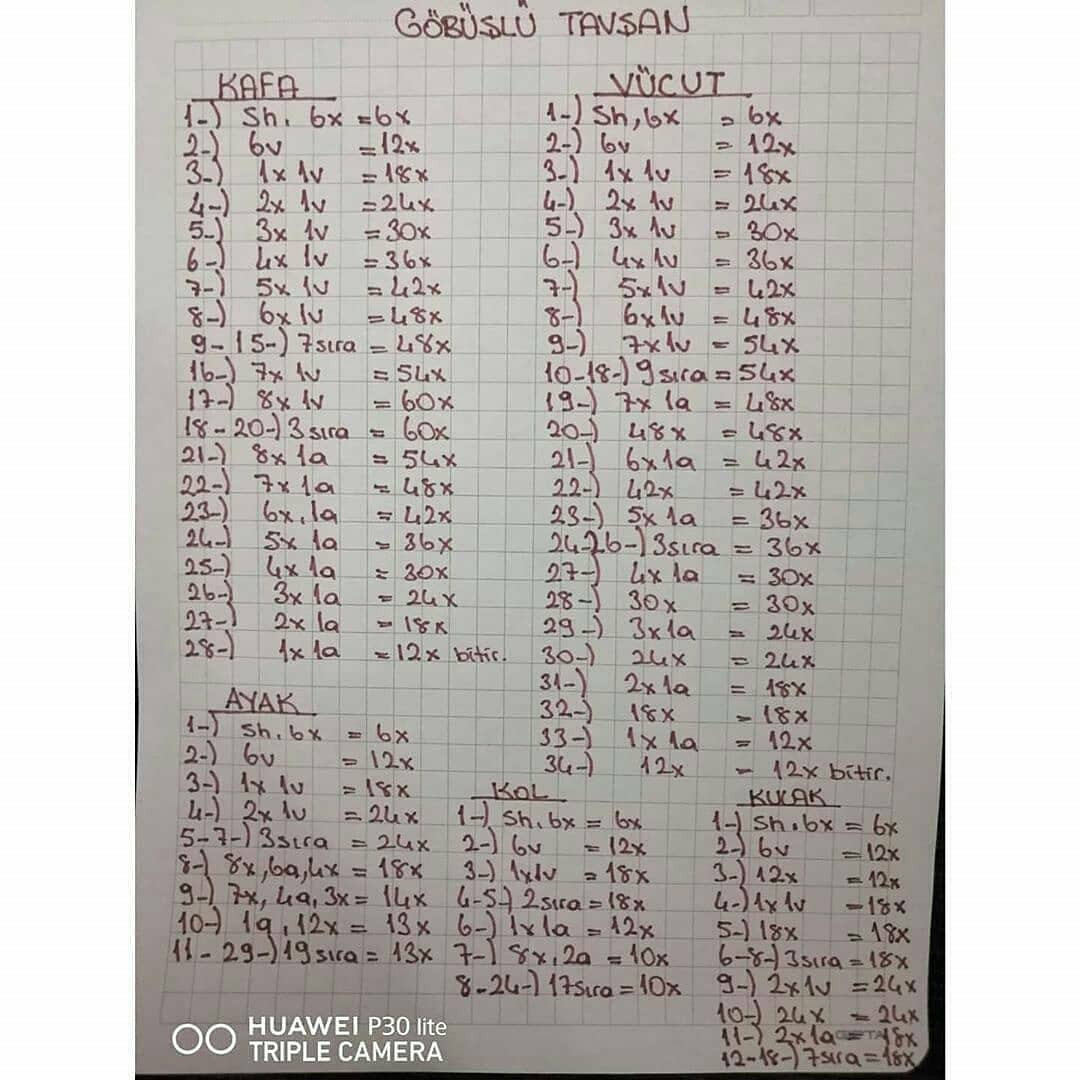 GÖBÜŞLÜ TAVŞAN
KAFA
1-) Sh. 6x = 6x
2-) 6v = 12x
3-) 1x 1v = 18x
4-) 2x 1v = 24x
5-) 3x 1v = 30x
6-) 4x 1v = 36x
7-) 5x 1v = 42x
8-) 6x 1v = 48x
9-15-) 7 sıra = 48x
16-) 7x 1v = 54x
17-) 8x 1v = 60x
18-20-) 3 sıra = 60x
21-) 8x 1a = 54x
22-) 7x 1a = 48x
23-) 6x.1a = 42x
24-) 5x 1a = 36x
25-) 4x 1a = 30x
26-) 3x 1a = 24x
27-) 2x 1a = 18x
28-) 1x 1a = 12x bitir.
VÜCUT
1-) Sh, 6x = 6x
2-) 6v = 12x
3-) 1x 1v = 18x
4-) 2x 1v = 24x
5-) 3x 1v = 30x
6-) 4x 1v = 36x
7-) 5x 1v = 42x
8-) 6x 1v = 48x
9-) 7x 1v = 54x
10-18-) 9 sıra = 54x
19-) 7x 1a = 48x
20-) 48x = 48x
21-) 6x 1a = 42x
22-) 42x = 42x
23-) 5x 1a = 36x
24-26-) 3 sıra = 36x
27-) 4x 1a = 30x
28-) 30x = 30x
29-) 3x 1a = 24x
30-) 24x = 24x
31-) 2x 1a = 18x
32-) 18x = 18x
33-) 1x 1a = 12x
34-) 12x = 12x bitir.
AYAK
1-) Sh. 6x = 6x
2-) 6v = 12x
3-) 1x 1v = 18x
4-) 2x 1v = 24x
5-7-) 3 sıra = 24x
8-) 8x, 6a, 4x = 18x
9-) 7x, 4a, 3x = 14x
10-) 1a, 12x = 13x
11-29-) 19 sıra = 13x
KOL
1-) Sh. 6x = 6x
2-) 6v = 12x
3-) 1x1v = 18x
4-5-) 2 sıra = 18x
6-) 1x 1a = 12x
7-) 8x, 2a = 10x
8-24-) 17 sıra = 10x
KULAK
1-) Sh. 6x = 6x
2-) 6v = 12x
3-) 12x = 12x
4-) 1x 1v = 18x
5-) 18x = 18x
6-8-) 3 sıra = 18x
9-) 2x 1v = 24x
10-) 24x = 24x
11-) 2x 1a = 18x
12-18-) 7 sıra = 18x
HUAWEI P30 lite
TRIPLE CAMERA